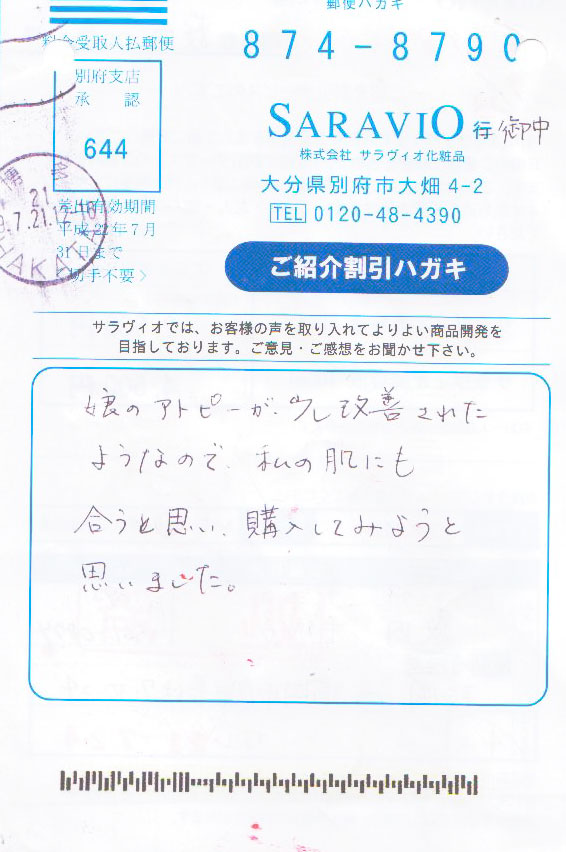 郵便ハガキ
料金受取人払郵便
874-8790
別府支店
承 認
644
SARAVIO 行 御中
株式会社 サラヴィオ化粧品
大分県別府市大畑 4-2
TEL 0120-48-4390
差出有効期間
平成22年7月
31日まで
切手不要>
ご紹介割引ハガキ
サラヴィオでは、お客様の声を取り入れてよりよい商品開発を
目指しております。ご意見・ご感想をお聞かせ下さい。
娘のアトピーが、少し改善された
ようなので、私の肌にも
合うと思い、購入してみようと
思いました。